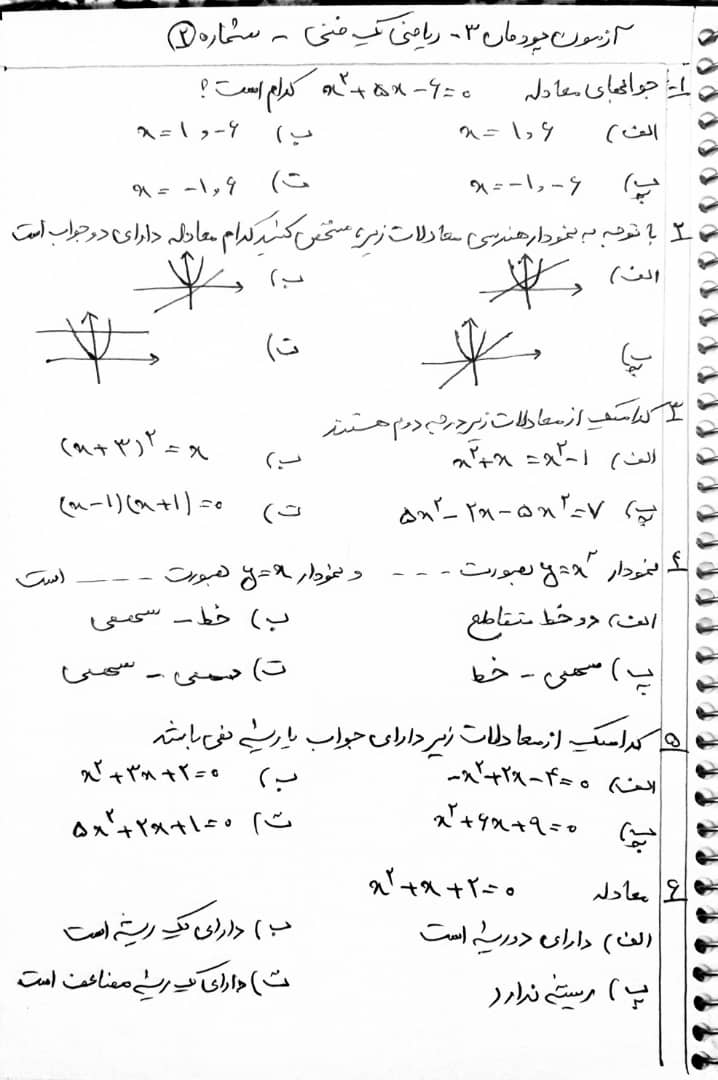 آزمون پودمان ۳ - ریاضی یک فنی - شماره ۲
۱- جوابهای معادله x²+۵x-۶=۰ کدام است؟
الف) x=۱,۶ ب) x=۱,-۶
پ) x=-۱,-۶ ت) x=-۱,۶
۲ با توجه به نمودار هندسی معادلات زیر، مشخص کنید کدام معادله دارای دو جواب است
الف) ب)
پ) ت)
۳ کدامیک از معادلات زیر درجه دوم هستند
الف) x²+x=x²-۱ ب) (x+۳)²=x
پ) ۵x²-۲x-۵x²=۷ ت) (x-۱)(x+۱)=۰
۴ نمودار y=x² بصورت - - - و نمودار y=x بصورت - - - - است
الف) دو خط متقاطع ب) خط - سهمی
پ) سهمی - خط ت) سهمی - سهمی
۵ کدامیک از معادلات زیر دارای جواب یا ریشه می باشد
الف) -x²+۲x-۴=۰ ب) x²+۳x+۲=۰
پ) x²+۶x+۹=۰ ت) ۵x²+۲x+۱=۰
۶ معادله x²+x+۲=۰
الف) دارای دو ریشه است ب) دارای یک ریشه است
پ) ریشه ندارد ت) دارای یک ریشه مضاعف است